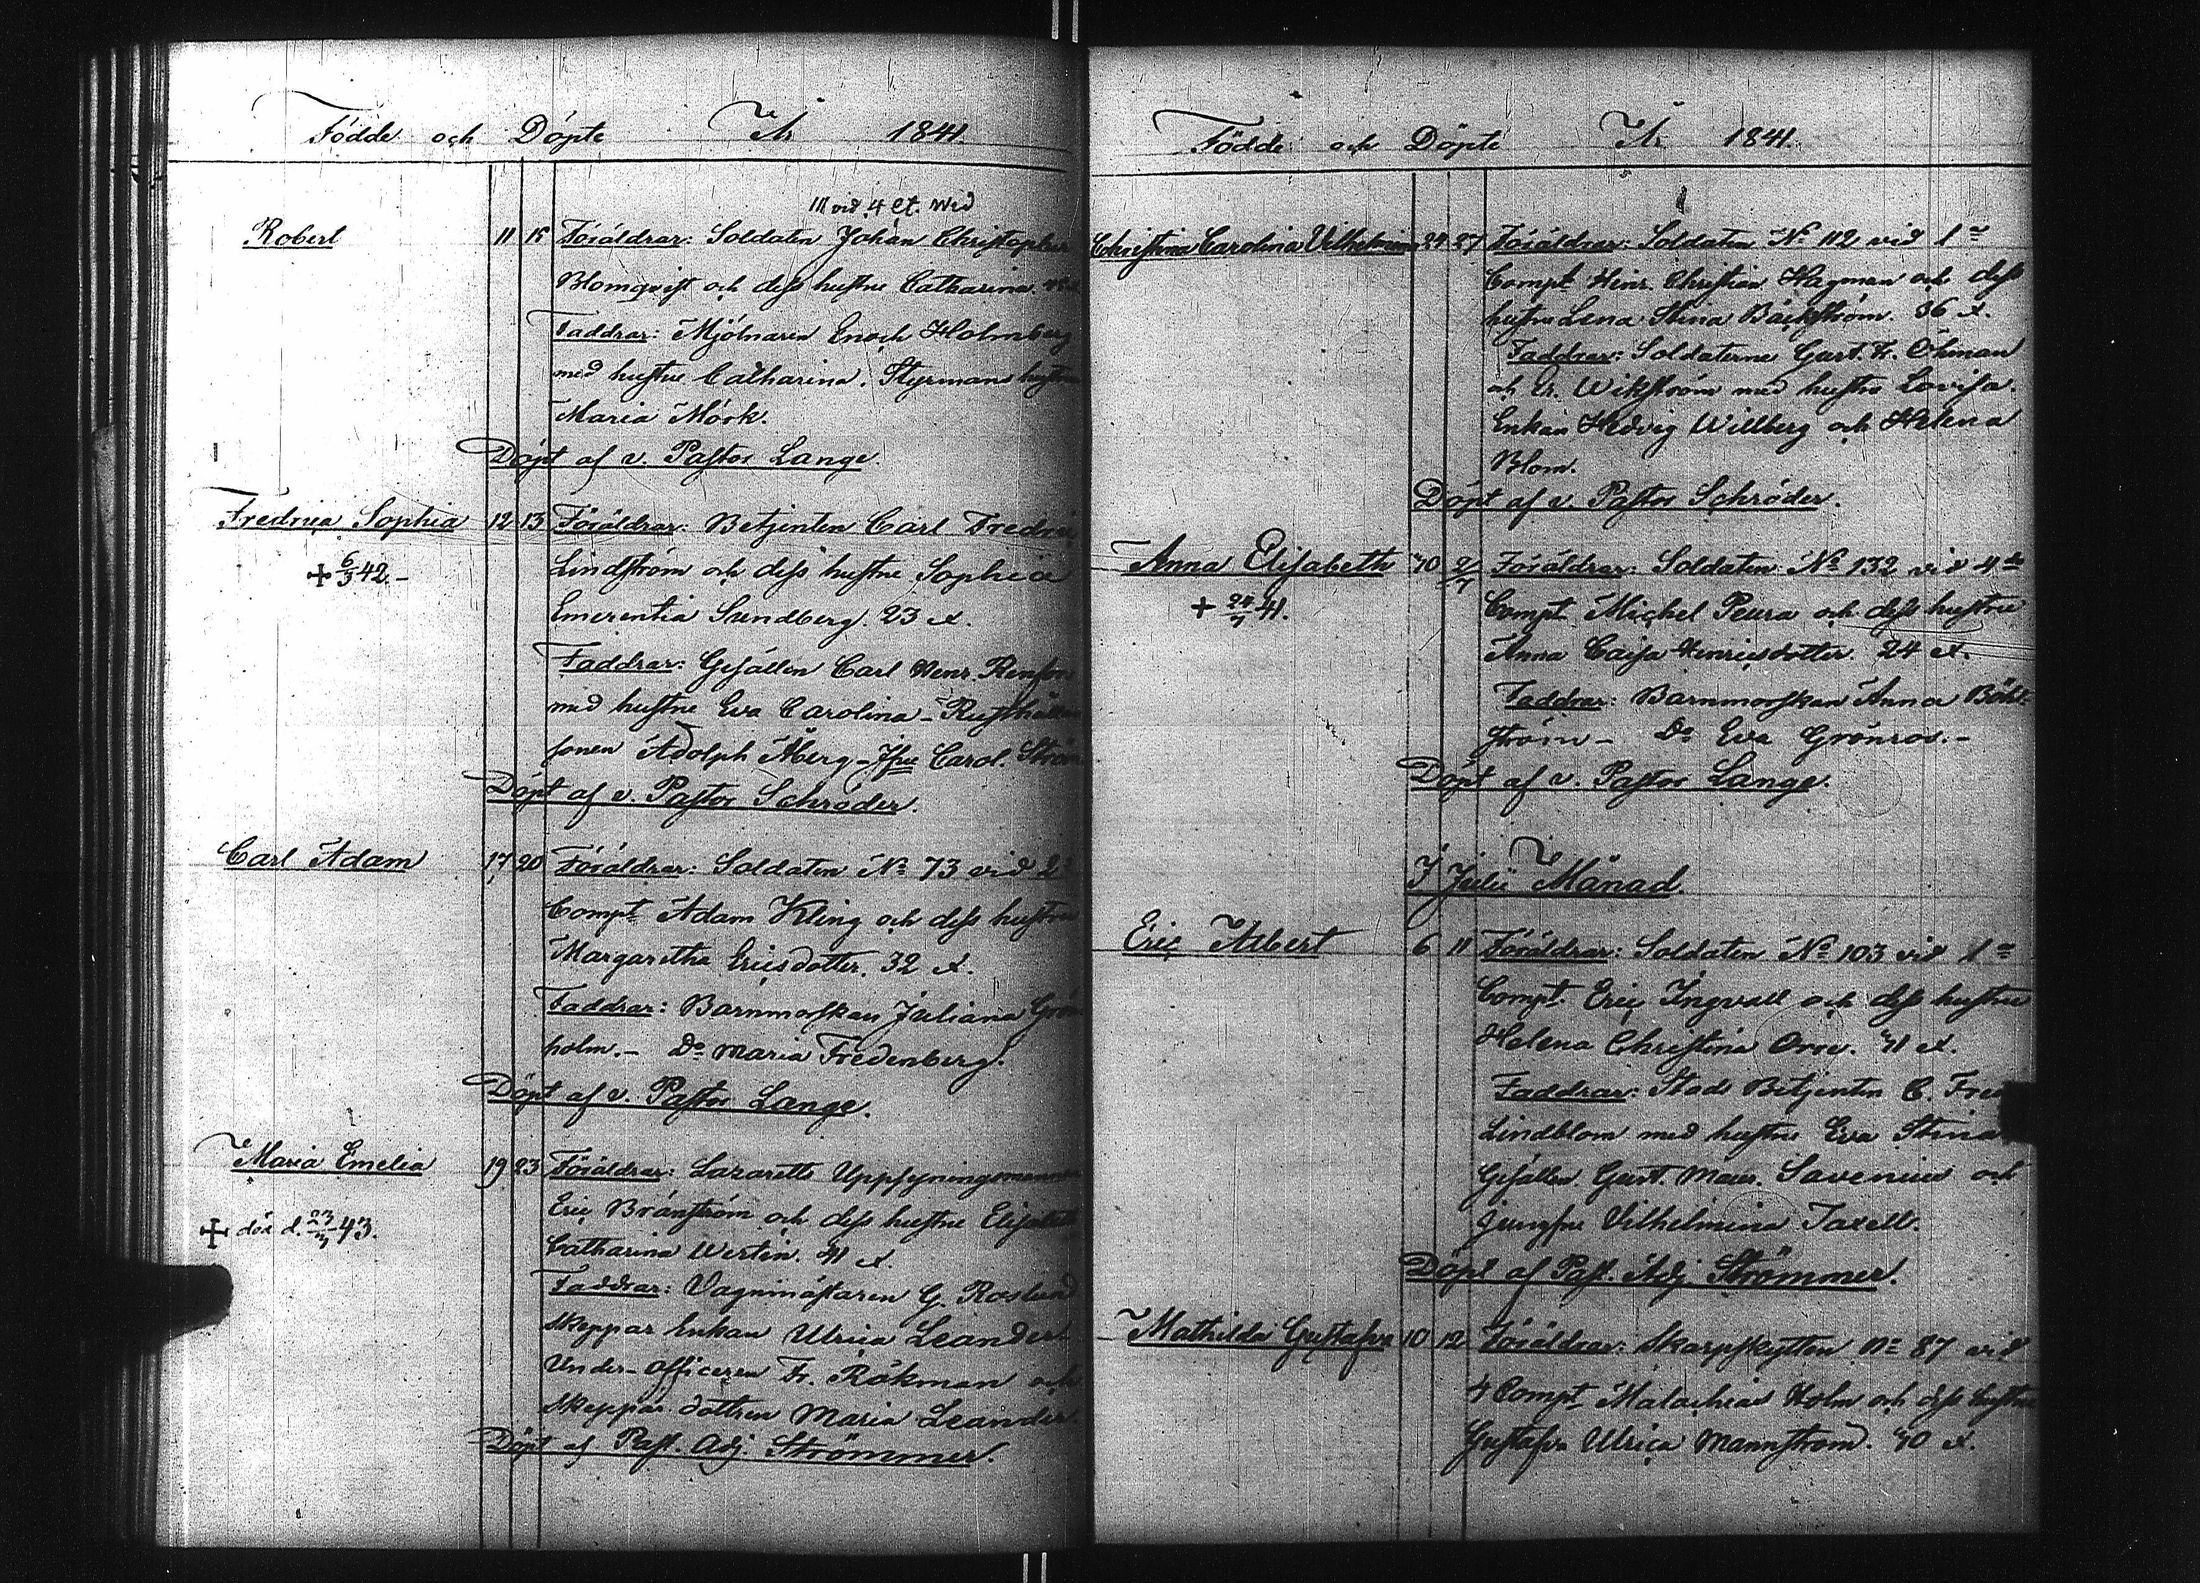 Födde och Döpte År 1841.
111 vid 4 Ct. Wid
Robert 11 15 Föräldrar: Soldaten Johan Christopher
Blomqvist och dess hustru Catharina
Faddrar: Mjölnaren Enoch Holmberg
med hustru Catharina. Styrmans hustru
Maria Mörk.
Döpt af v. Pastor Lange.
Fredrica Sophia 12 13 Föräldrar: Betjenten Carl Fredric
+ 6/3 42.- Lindström och dess hustru Sophia
Emerentia Sundberg. 23 år.
Faddrar: Gesällen Carl Henr. Renfors
med hustru Eva Carolina - Rusthållare
sonen Adolph Åberg - Jfru Carol. Ström
Döpt af v. Pastor Schröder.
Carl Adam 17 20 Föräldrar: Soldaten No 73 vid 2
Compt Adam Kling och dess hustru
Margaretha Ericsdotter. 32 år.
Faddrar: Barnmorskan Juliana Grön
holm. - Do Maria Fredenberg.
Döpt af v. Pastor Lange.
Maria Emelia 19 23 Föräldrar: Lazaretts Uppsyningsmannen
+ död d. 23/3 43. Eric Brånström och dess hustru Elisabeth
Catharina Wertin. 41 år.
Faddrar: Vagnmästaren G. Roslund
Skeppar Enkan Ulrica Leander
Under-officeren Fr. Råkman och
Skeppar dottren Maria Leander.
Döpt af Past. Adj. Strömmer.
Födde och Döpte År 1841.
Christina Carolina Vilhelmina 24 27 Föräldrar: Soldaten No 112 vid 1a
Compt Henr. Christian Hagman och dess
hustru Lena Stina Bäckström. 36 år.
Faddrar: Soldaterne Gust. H. Öhman
och Er. Wikström med hustru Lovisa.
Enkan Hedvig Willberg och Helena
Blom.
Döpt af v. Pastor Schröder.
Anna Elisabeth 30 2/7 Föräldrar: Soldaten No 132 vid 4de
+ 24/7 41. Compt Michel Peura och dess hustru
Anna Caisa Henricsdotter. 24 år.
Faddrar: Barnmorskan Anna Böhl-
ström - Do Eva Grönros. -
Döpt af v. Pastor Lange.
I Julii Månad.
Eric Albert 6 11 Föräldrar: Soldaten No 103 vid 1a
Compt Eric Ingvall och dess hustru
Helena Christina Orre. 41 år.
Faddrar: Stads Betjenten C. Fred
Lindblom med hustru Eva Stina
Gesällen Gust. Maur. Savenius och
Jungfru Vilhelmina Taxell.
Döpt af Past. Adj Strömmer.
Mathilda Gustafva 10 12 Föräldrar: Skarpskytten No 87 vid
4 Compt Malachias Holm och dess hustru
Gustafva Ulrica Mannström. 40 år.